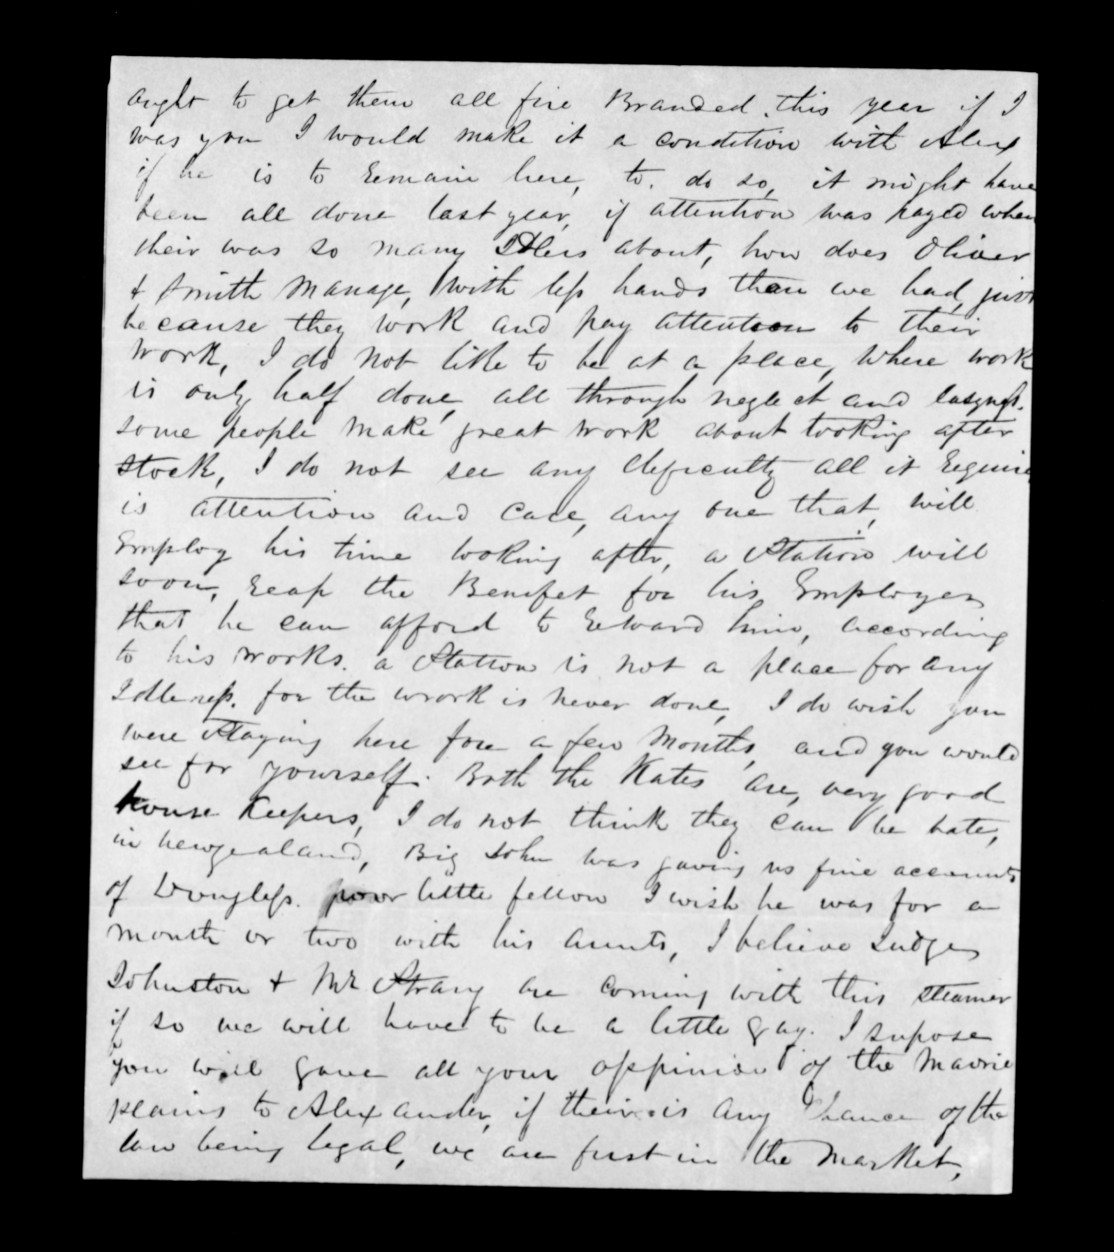 aught to get them all fire Branded. this year if I
was you I would make it a condition with Alex
if he is to Remain here, to. do so, it might have
been all done last year, if attention was payed when
their was so many Idlers about, how does Oliver
& Smith Manage, with less hands than we had, just
because they work and pay attention to their
work, I do not like to be at a place, where work
is only half done, all through neglect and
some people make great work about looking after
stock, I do not see any deficulty all it Require
is attention and Care, any one that, will
Employ his time looking after, a Station will
soon, Reap the Benifet for his Employer
that he can afford to Reward him, according
to his works. a Station is not a place for any
Idleness. for the work is never done, I do wish you
were staying here for a few Months, and you would
see for yourself. Both the Kates are, very good
house Keepers, I do not think they can be bate,
in newzealand, Big John was gaving us fine accounts
of Douglass. poor little fellow I wish he was for a
month or two with his Aunts, I believe Judge
Johnston & Mr Strang are coming with this steamer
if so we will have to be a little gay. I supose
you will gave all your oppinion of the Maorie
plains to Alexander, if their is any Chance of the
law being legal, we are first in the Market,